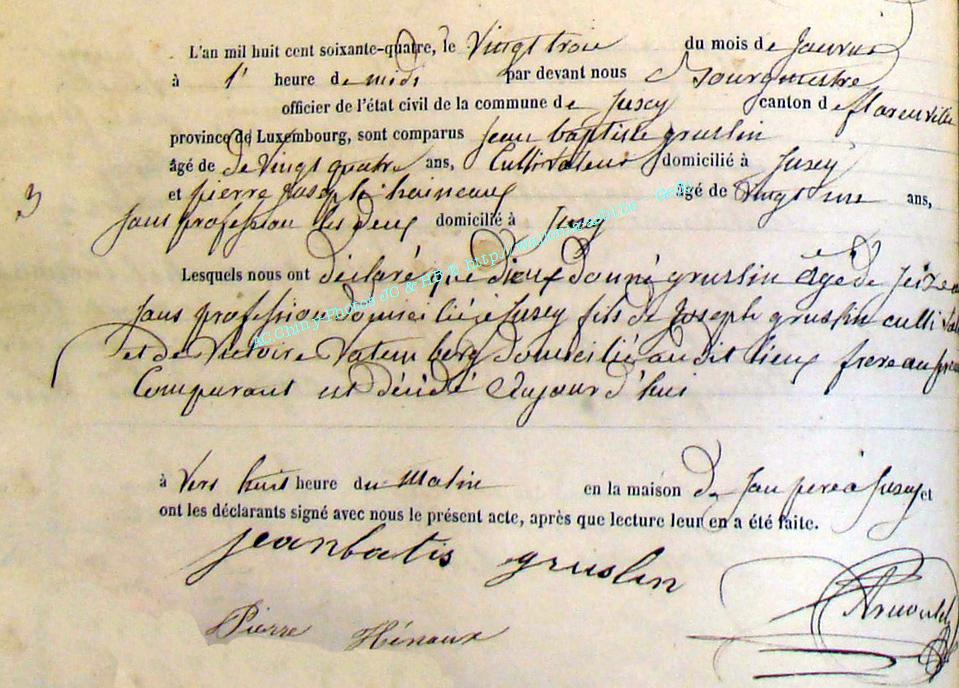 L'an mil huit cent soixante-quatre, le Vingt trois du mois de Janvier
à 1' heure de midi par devant nous Bourgmestre
officier de l'état civil de la commune de Jusey canton de florenville
province de Luxembourg, sont comparus jean baptiste gruslin
âgé de de Vingt quatre ans, Cultivateur domicilié à Jusey
3 et pierre Joseph haineaux âgé de Vingt une ans,
sans profession les deux domicilié à Jusey
Lesquels nous ont déclaré que dieudonné gruslin âgé de seize ans
sans profession domicilié à Jusey fils de Joseph gruslin cultivat
et de Victoire Vatembery domicilié audit lieux frere au
Comparant est décidé aujourd'hui
à Vers huit heure du Matin en la maison de Son pere à Jusey et
ont les déclarants signé avec nous le présent acte, après que lecture leur en a été faite.
jeanbatis gruslin
Arnould
Pierre Hénaux
AC Chiny-Photos JC & HB ©